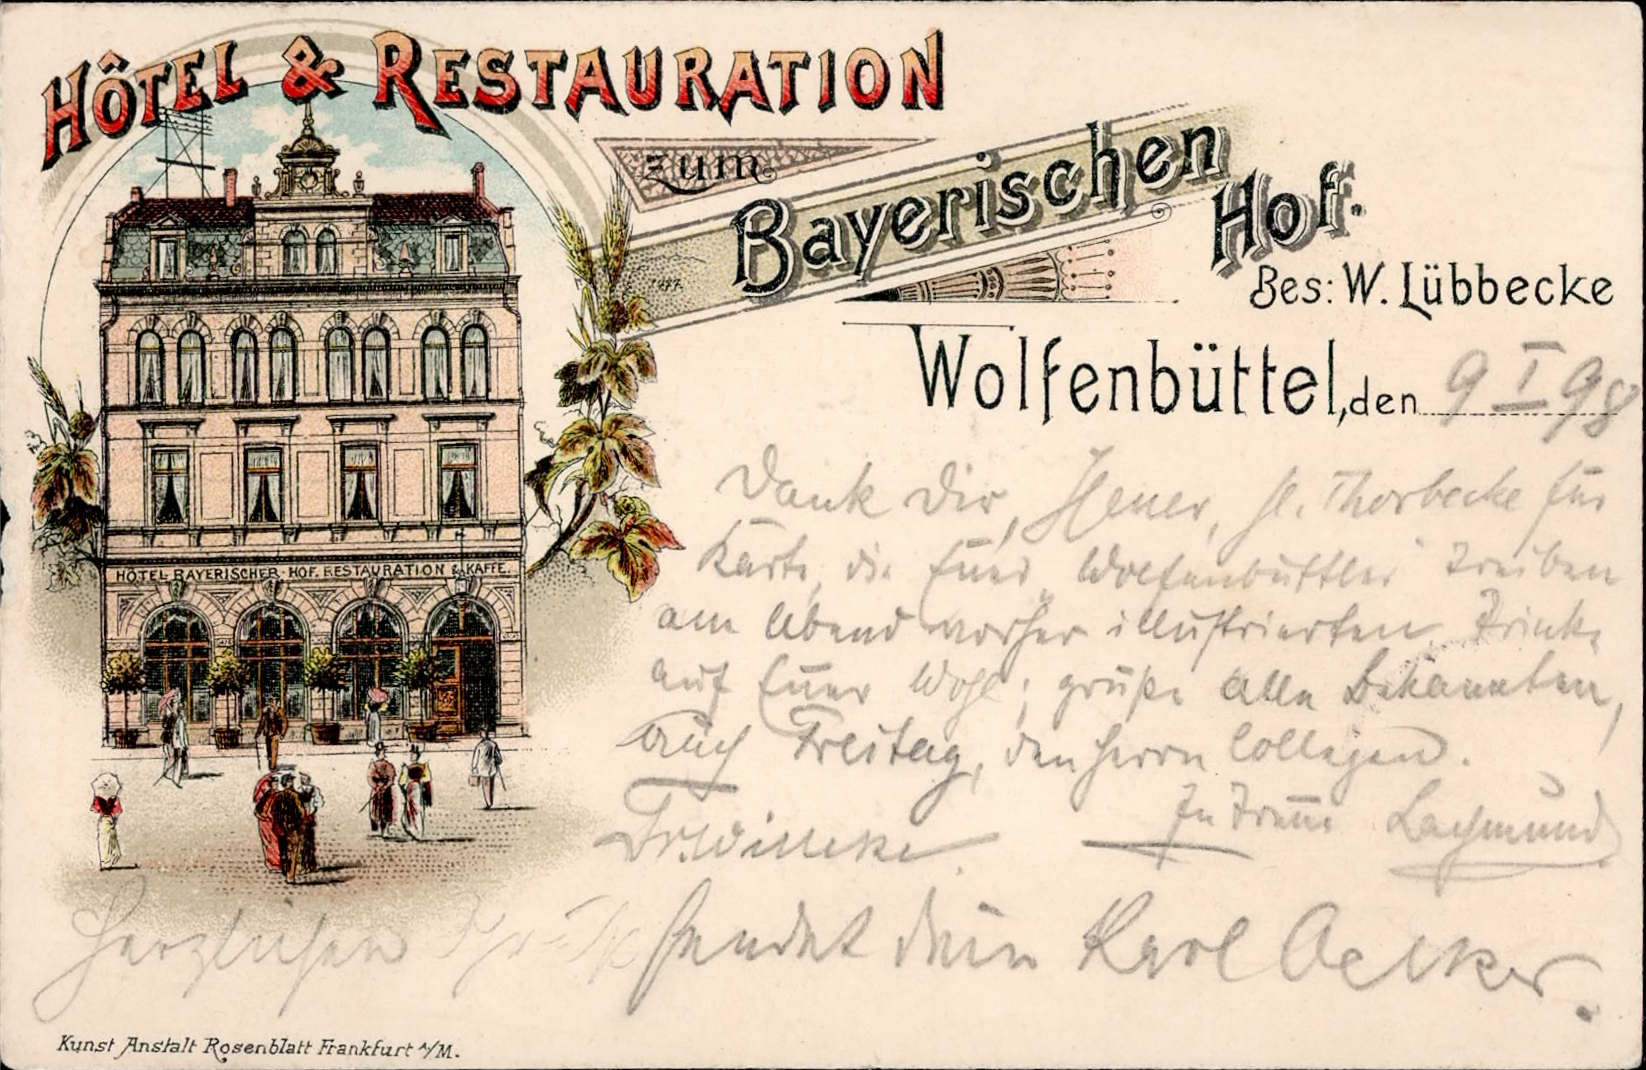 HÔTEL & RESTAURATION
zum
Bayerischen
Hof.
Bes: W. Lübbecke
Wolfenbüttel, den 9 I 98
HÔTEL BAYERISCHER HOF. RESTAURATION & KAFFE.
Dank Dir, Thorbecke für
Karte, die Euer Wolfenbüttler Treiben
am Abend vorher illustrierten. Trinke
auf Euer Wohl; grüße alle Bekannten,
auch Freitag, den Herrn Collegen.
In Treue Lachmund
Fr. Willeke.
Herzlichen Gruß sendet dein Karl Oelker.
Kunst Anstalt Rosenblatt Frankfurt A/M.